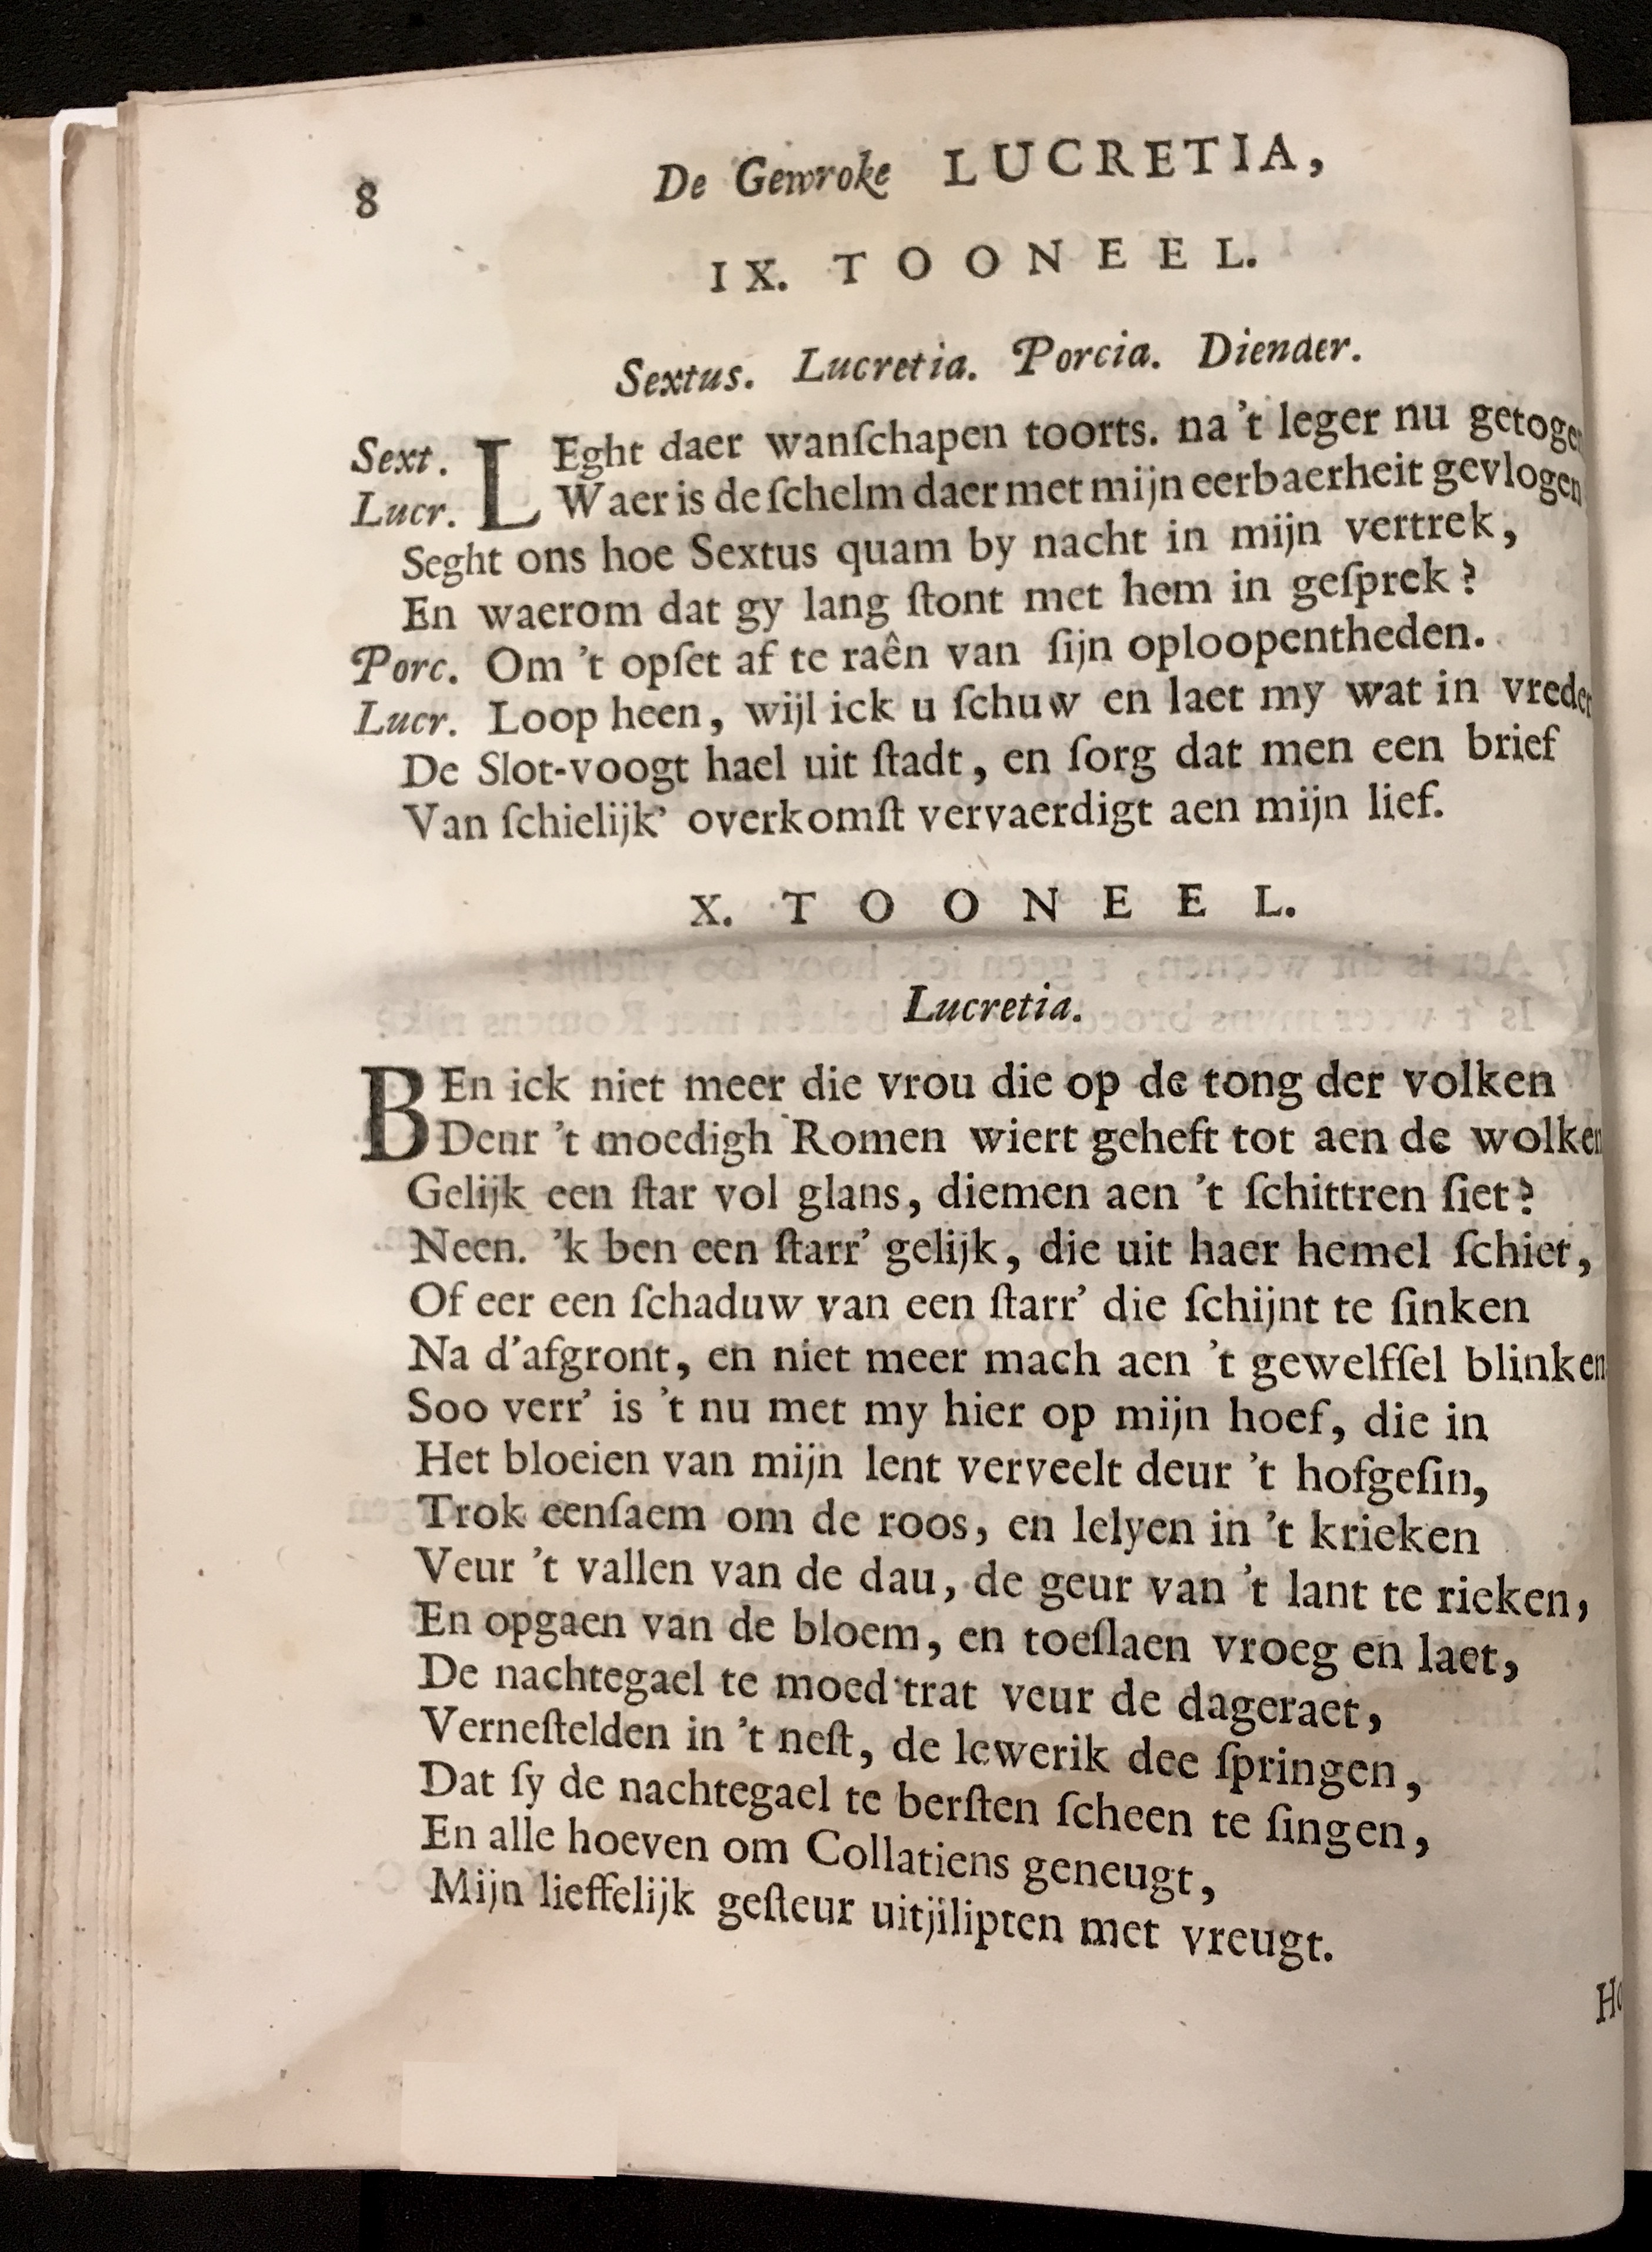 8 De Gewroke LUCRETIA,
IX. TOONEEL.
Sextus. Lucretia. Porcia. Diender.
Sext. LEght daer wanſchapen toorts. na 't leger nu getogen
Lucr. Waer is de ſchelm daer met mijn eerbaerheit gevlogen
Seght ons hoe Sextus quam by nacht in mijn vertrek,
En waerom dat gy lang ſtont met hem in geſprek?
Porc. Om 't opſet af te raên van ſijn oploopentheden.
Lucr. Loop heen, wijl ick u ſchuw en laet my wat in vreden
De Slot-voogt hael uit ſtadt, en ſorg dat men een brief
Van ſchielijk' overkomſt vervaerdigt aen mijn lief.
X. TOONEEL.
Lucretia.
BEn ick niet meer die vrou die op de tong der volken
Deur 't moedigh Romen wiert geheft tot aen de wolken
Gelijk een ſtar vol glans, diemen aen 't ſchittren ſiet?
Neen. 'k ben een ſtarr' gelijk, die uit haer hemel ſchiet,
Of eer een ſchaduw van een ſtarr' die ſchijnt te ſinken
Na d'afgront, en niet meer mach aen 't gewelfſel blinken
Soo verr' is 't nu met my hier op mijn hoef, die in
Het bloeien van mijn lent verveelt deur 't hofgeſin,
Trok eenſaem om de roos, en lelyen in 't krieken
Veur 't vallen van de dau, de geur van 't lant te rieken,
En opgaen van de bloem, en toeſlaen vroeg en laet,
De nachtegael te moed trat veur de dageraet,
Verneſtelden in 't neſt, de lewerik dee ſpringen,
Dat ſy de nachtegael te berſten ſcheen te ſingen,
En alle hoeven om Collatiens geneugt,
Mijn lieffelijk geſteur uitjilipten met vreugt.